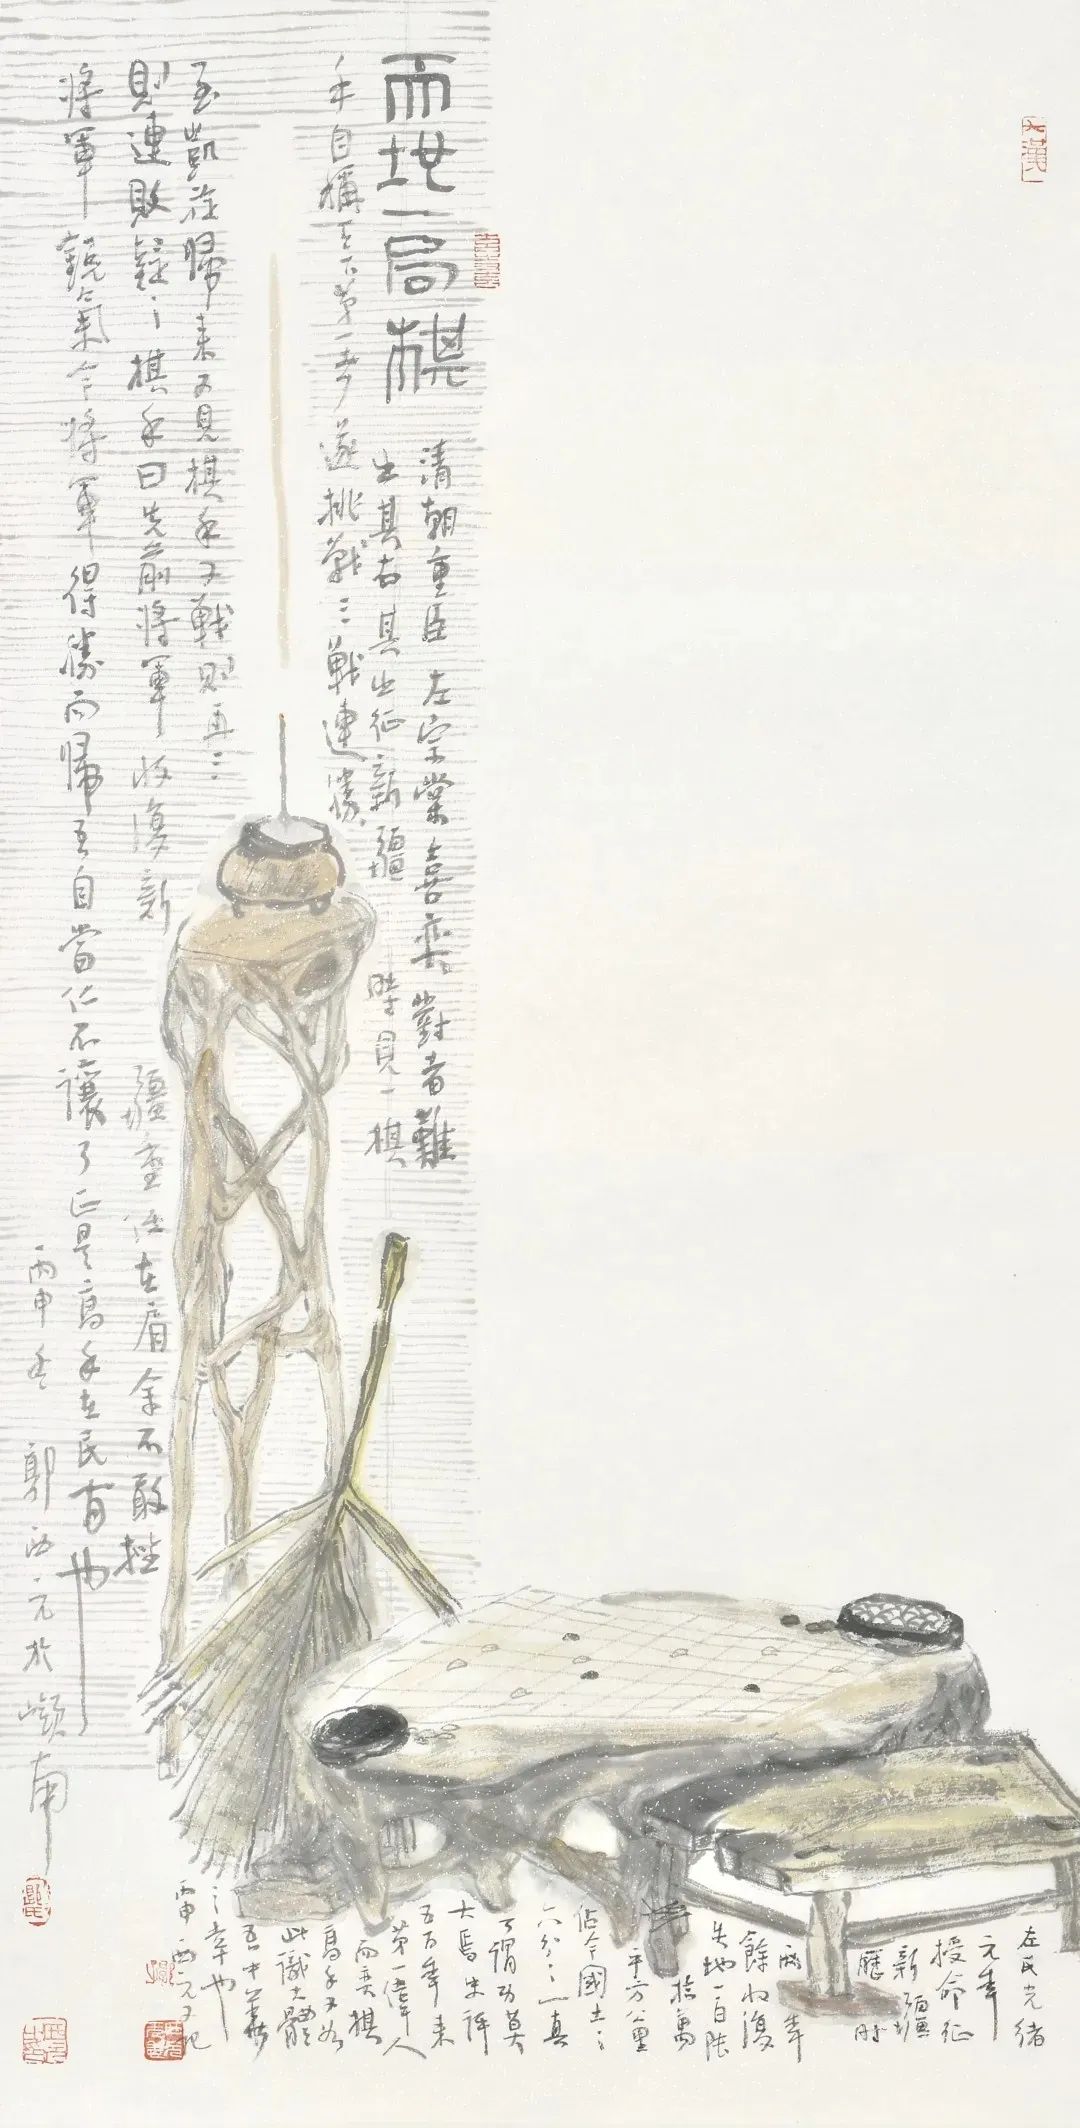 天地一局棋
清朝重臣左宗棠喜弈對者難
出其右其出征新疆時見一棋
手自稱天下第一 遂挑戰三戰連勝
至凱旋歸來又見棋手又戰則再三
則連敗疑之棋手曰先前將軍收復新
疆重任在肩余不敢挫
將軍銳氣今將軍得勝而歸吾自當仁不讓了正是高手在民間也
丙申冬 郭西元於嶺南
左氏光緒
元年
授命征
新疆
歷時
兩年
餘收復
失地一百陸
拾萬
平方公里
佔今國土之
六分之一真
可謂功莫
大焉史評
五百年來
第一偉人
而弈棋
高手又如
此識大體
吾中華
之幸也
丙申西元又記